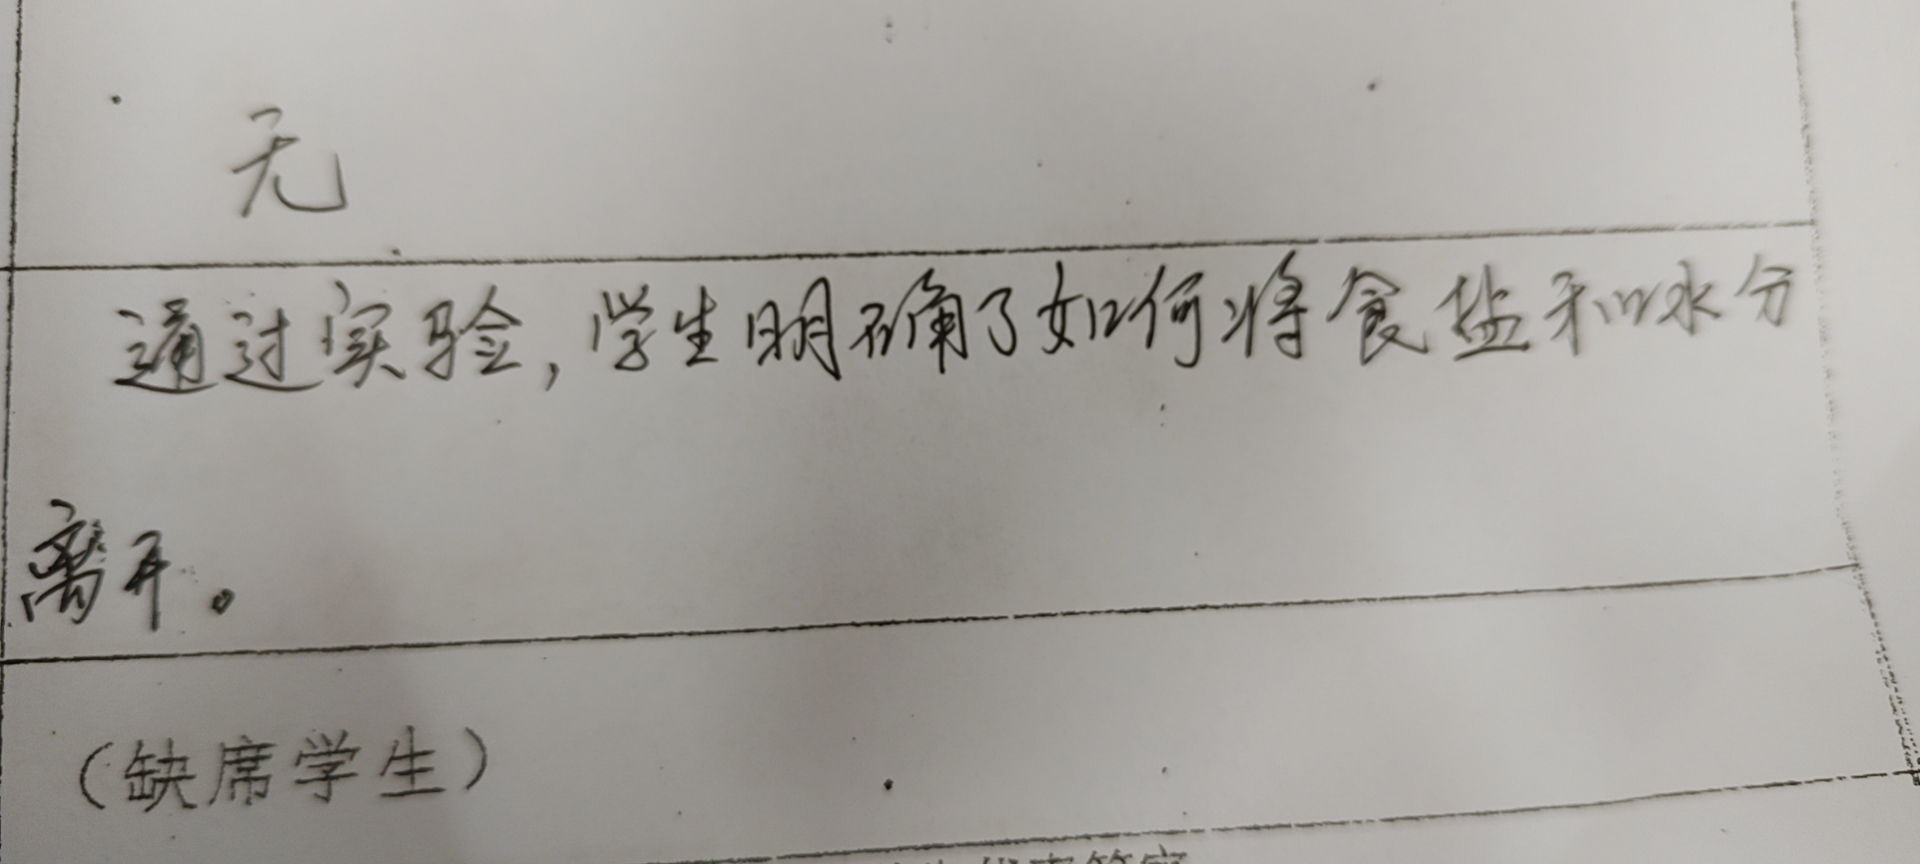 无
通过实验,学生明确了如何将食盐和水分
离开。
(缺席学生)